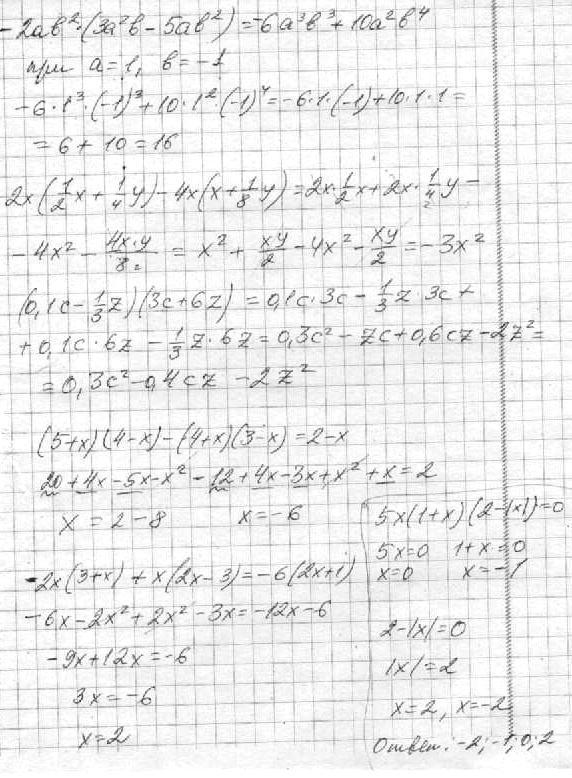 -2ab²·(3a²b - 5ab²) = -6a³b³ + 10a²b⁴
при a=1, b=-1
-6·1³·(-1)³+10·1²·(-1)⁴=-6·1·(-1)+10·1·1=
=6+10=16
2x(1/2x + 1/4y) - 4x(x+1/8y)=2x·1/2x+2x·1/4y-
-4x² - 4x·y/8 = x² + xy/2 - 4x² - xy/2 = -3x²
(0,1c-1/3z)(3c+6z) = 0,1c·3c - 1/3z·3c+
+0,1c·6z - 1/3z·6z=0,3c²-zc+0,6cz-2z²=
=0,3c²-0,4cz-2z²
(5+x)(4-x)-(4+x)(3-x)=2-x
20+4x-5x-x²-12+4x-3x+x²+x=2
x=2-8 x=-6
-2x(3+x)+x(2x-3)=-6(2x+1)
-6x-2x²+2x²-3x=-12x-6
-9x+12x=-6
3x=-6
x=2
5x(1+x)(2-|x|)=0
5x=0 1+x=0
x=0 x=-1
2-|x|=0
|x|=2
x=2, x=-2
Ответ: -2;-1;0;2